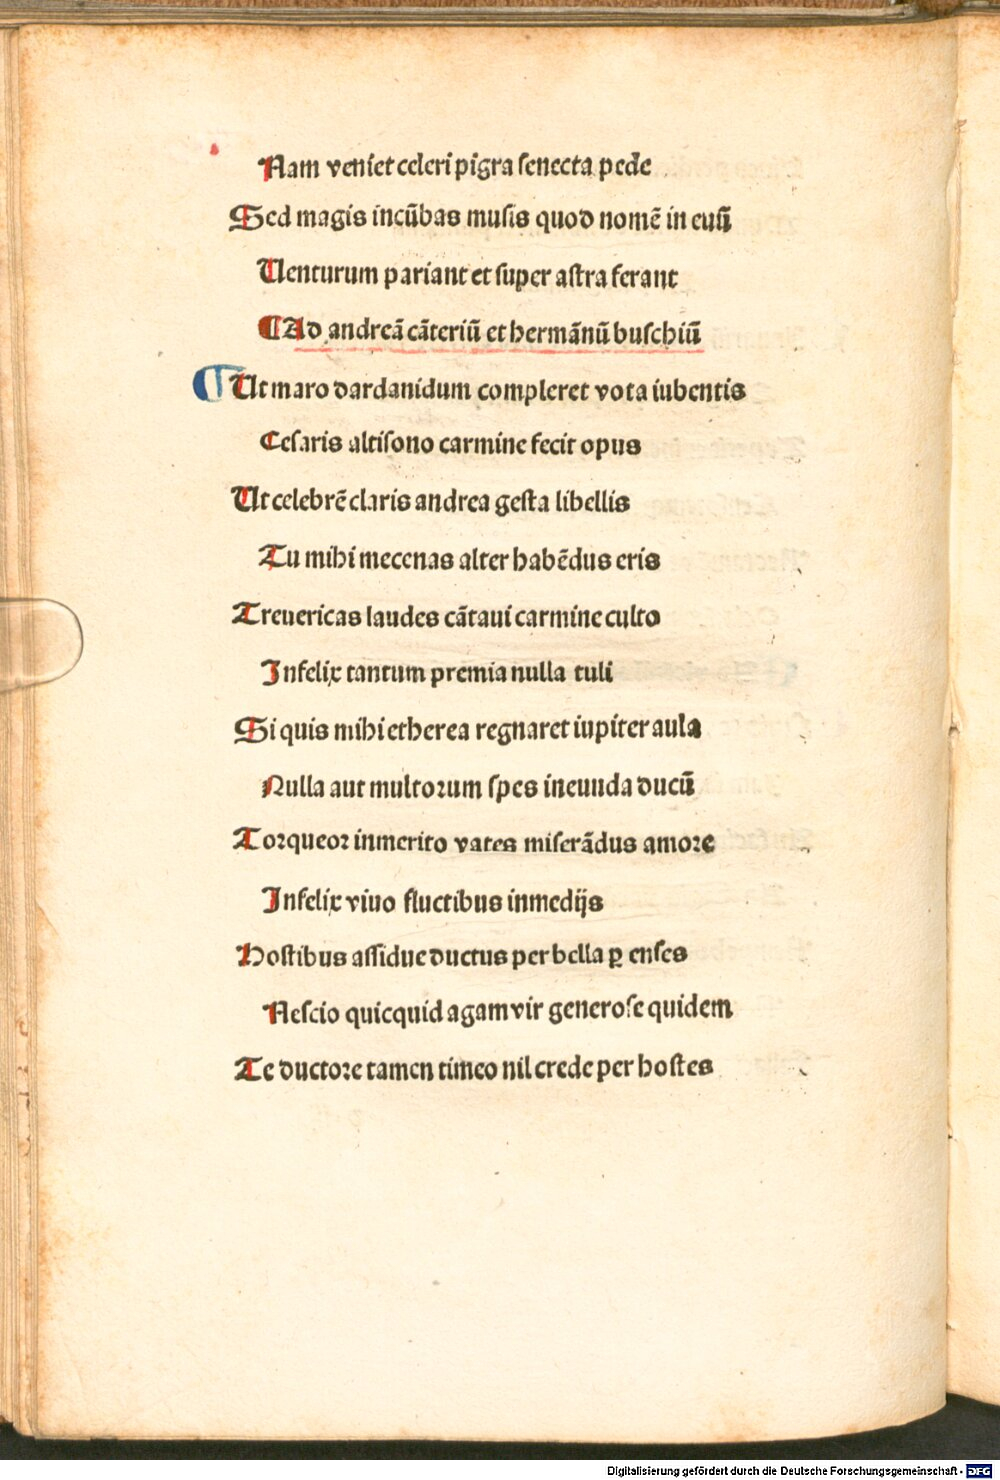 Nam veniet celeri pigra senecta pede
Sed magis incūbas musis quod nomē in euū
Uenturum pariant et super astra ferant
¶ Ad andreā cāteriū et hermānū buschiū
¶ Ut maro dardanidum compleret vota iubentis
Cesaris altisono carmine fecit opus
Ut celebrē claris andrea gesta libellis
Tu mihi mecenas alter habēdus eris
Treuericas laudes cātaui carmine culto
Infelix tantum premia nulla tuli
Si quis mihi etherea regnaret iupiter aula
Nulla aut multorum spes ineunda ducū
Torqueor inmerito vates miserādus amore
Infelix viuo fluctibus in medijs
Hostibus assidue ductus per bella ꝑ enses
Nescio quicquid agam vir generose quidem
Te ductore tamen timeo nil crede per hostes
Digitalisierung gefördert durch die Deutsche Forschungsgemeinschaft - DFG